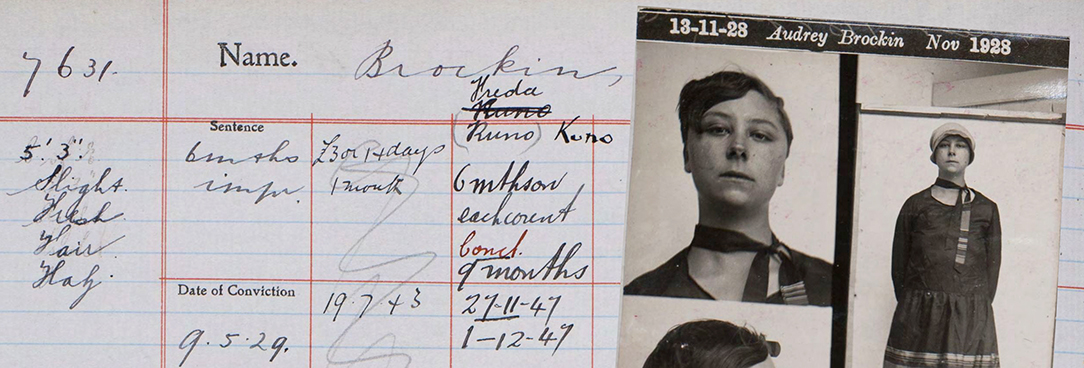 13-11-28 Audrey Brockin Nov 1928
7631.
Name.
Brockin,
Freda
Kuno
Kuno
Sentence
5'.3".
6mths
£3 or 14 days
Slight.
impr.
1 month
6 mthson
Fresh
each count
Fair
Concl.
Haz
9 months
Date of Conviction
19.7.43
27-11-47
9.5.29.
1-12-47